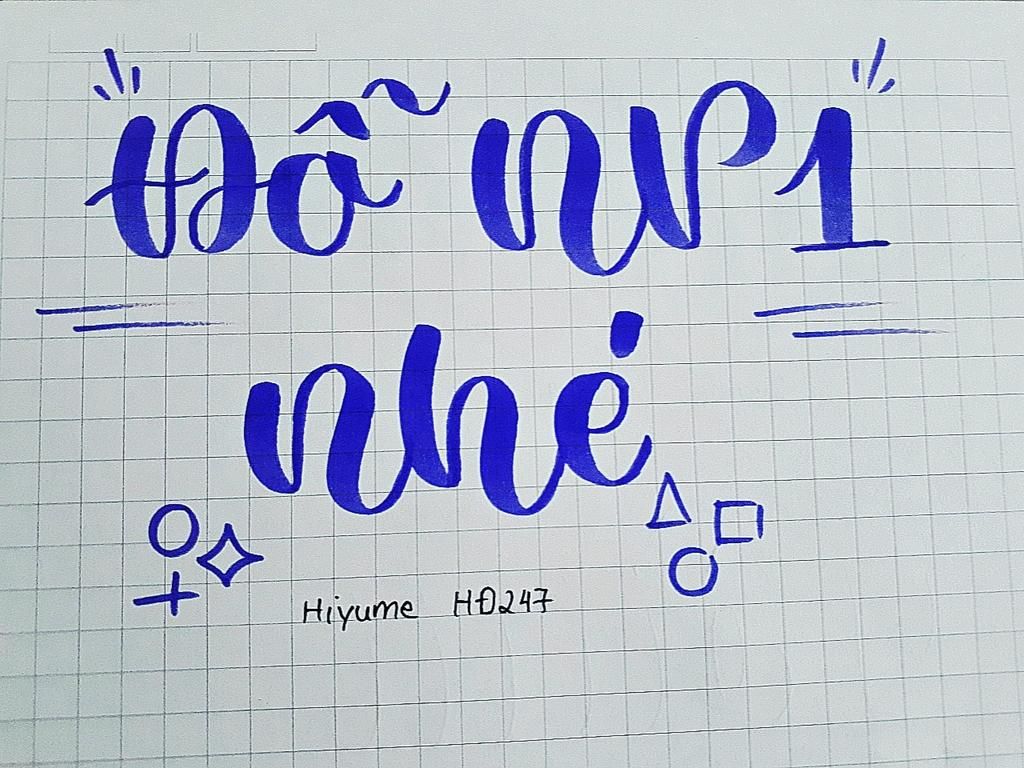 Đỗ NV1
nhé
Hiyume HĐ247